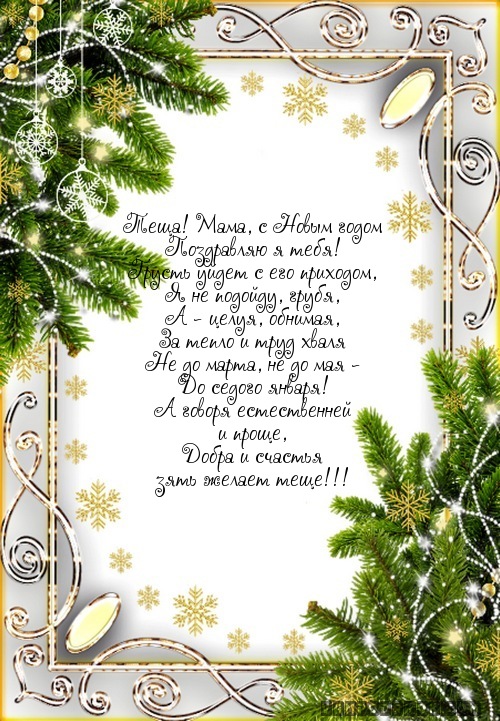 Теща! Мама, с Новым годом
Поздравляю я тебя!
Грусть уйдет с его приходом,
Я не подойду, грубя,
А - целуя, обнимая,
За тепло и труд хваля
Не до марта, не до мая -
До седого января!
А говоря естественней
и проще,
Добра и счастья
зять желает теще!!!